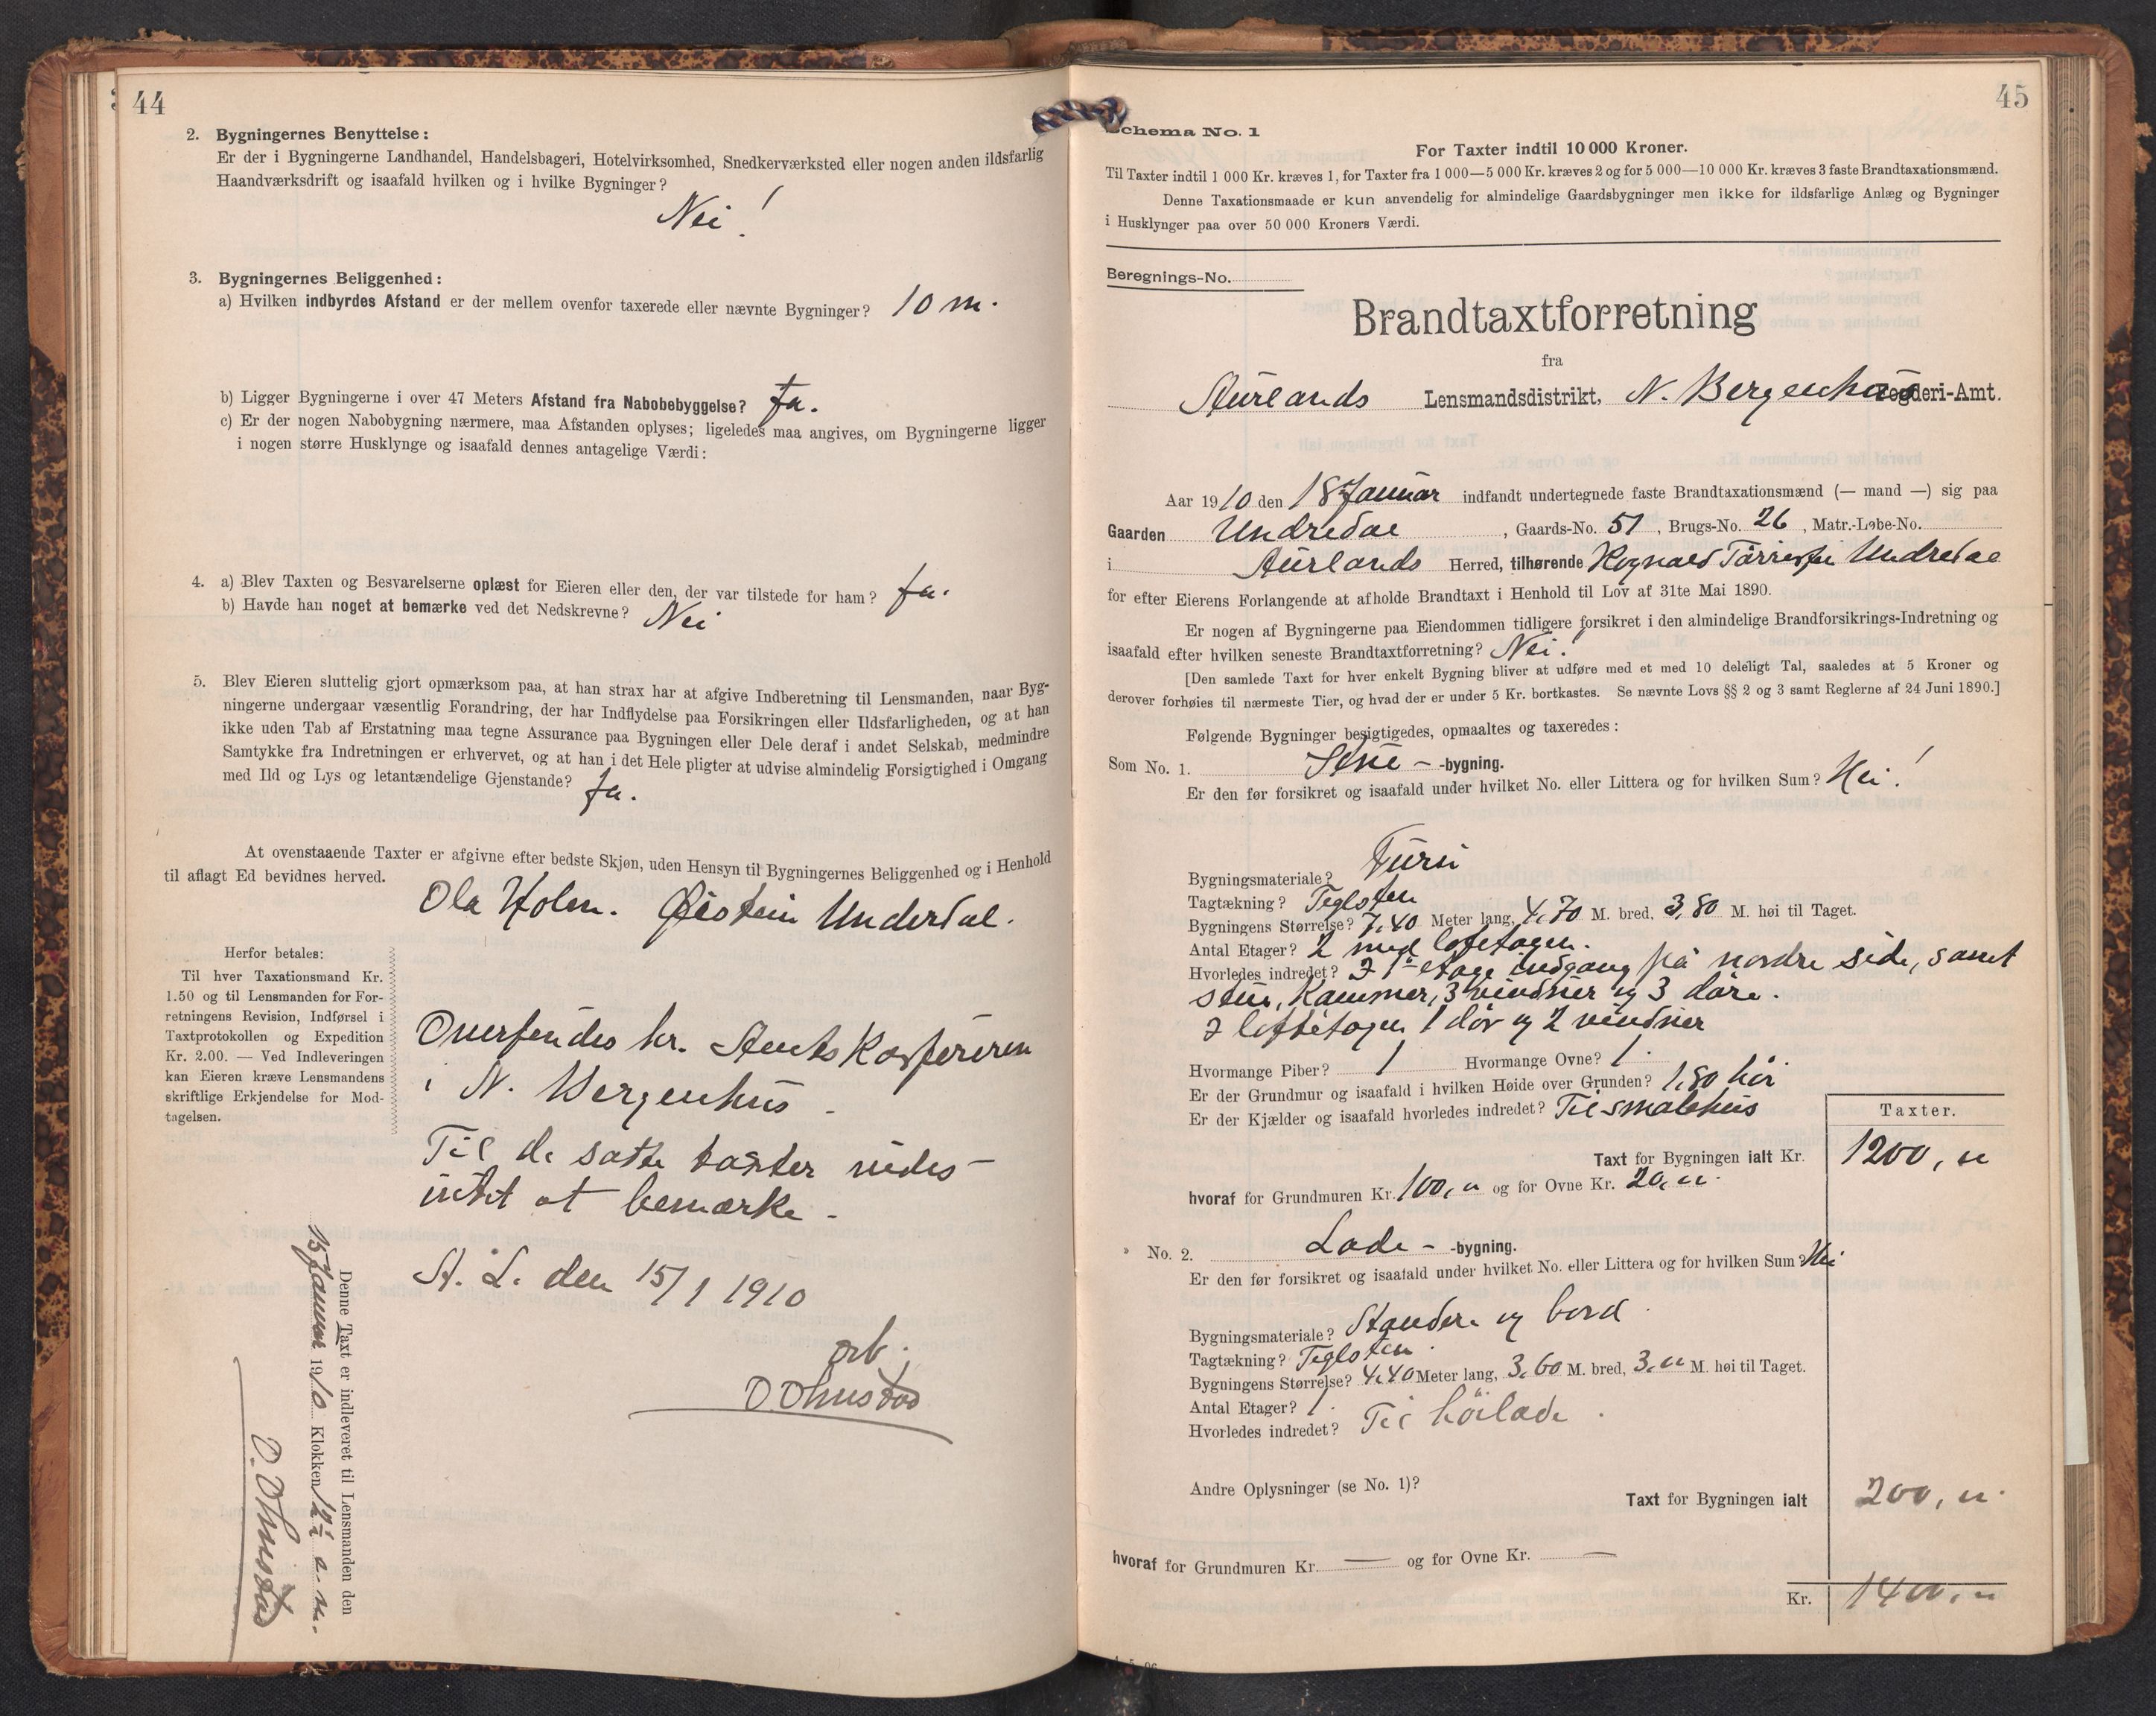 44
2. Bygningernes Benyttelse:
Er der i Bygningerne Landhandel, Handelsbageri, Hotelvirksomhed, Snedkerværksted eller nogen anden ildsfarlig
Haandværksdrift og isaafald hvilken og i hvilke Bygninger?
Nei!
3. Bygningernes Beliggenhed:
a) Hvilken indbyrdes Afstand er der mellem ovenfor taxerede eller nævnte Bygninger? 10 m.
b) Ligger Bygningerne i over 47 Meters Afstand fra Nabobebyggelse? Ja.
c) Er der nogen Nabobygning nærmere, maa Afstanden oplyses; ligeledes maa angives, om Bygningerne ligger
i nogen større Husklynge og isaafald dennes antagelige Værdi:
4. a) Blev Taxten og Besvarelserne oplæst for Eieren eller den, der var tilstede for ham? Ja.
b) Havde han noget at bemærke ved det Nedskrevne? Nei
5. Blev Eieren sluttelig gjort opmærksom paa, at han strax har at afgive Indberetning til Lensmanden, naar Byg-
ningerne undergaar væsentlig Forandring, der har Indflydelse paa Forsikringen eller Ildsfarligheden, og at han
ikke uden Tab af Erstatning maa tegne Assurance paa Bygningen eller Dele deraf i andet Selskab, medmindre
Samtykke fra Indretningen er erhvervet, og at han i det Hele pligter at udvise almindelig Forsigtighed i Omgang
med Ild og Lys og letantændelige Gjenstande? Ja.
At ovenstaaende Taxter er afgivne efter bedste Skjøn, uden Hensyn til Bygningernes Beliggenhed og i Henhold
til aflagt Ed bevidnes herved.
Ola Holm. Øistein Underdal.
Herfor betales:
Til hver Taxationsmand Kr.
1.50 og til Lensmanden for For-
retningens Revision, Indførsel i
Taxtprotokollen og Expedition
Kr. 2.00. — Ved Indleveringen
kan Eieren kræve Lensmandens
skriftlige Erkjendelse for Mod-
tagelsen.
Oversendes hr. Amtskassereren
i N. Bergenhus -
Til de satte taxter vides
intet at bemærke -
A. L. den 15/1 1910
arb.
O. Ohnstad
Denne Taxt er indleveret til Lensmanden den
15 Januar 1910 Klokken 12 a. m.
O. Ohnstad
45
Schema No. 1
For Taxter indtil 10 000 Kroner.
Til Taxter indtil 1 000 Kr. kræves 1, for Taxter fra 1 000—5 000 Kr. kræves 2 og for 5 000—10 000 Kr. kræves 3 faste Brandtaxationsmænd.
Denne Taxationsmaade er kun anvendelig for almindelige Gaardsbygninger men ikke for ildsfarlige Anlæg og Bygninger
i Husklynger paa over 50 000 Kroners Værdi.
Beregnings-No.
Brandtaxtforretning
fra
Aurlands Lensmandsdistrikt, N. Bergenhus Fogderi-Amt.
Aar 1910 den 18 Januar indfandt undertegnede faste Brandtaxationsmænd (— mand —) sig paa
Gaarden Undredal, Gaards-No. 51, Brugs-No. 26, Matr.-Løbe-No.
i Aurlands Herred, tilhørende Undredal
for efter Eierens Forlangende at afholde Brandtaxt i Henhold til Lov af 31te Mai 1890.
Er nogen af Bygningerne paa Eiendommen tidligere forsikret i den almindelige Brandforsikrings-Indretning og
isaafald efter hvilken seneste Brandtaxtforretning? Nei!
[Den samlede Taxt for hver enkelt Bygning bliver at udføre med et med 10 deleligt Tal, saaledes at 5 Kroner og
derover forhøies til nærmeste Tier, og hvad der er under 5 Kr. bortkastes. Se nævnte Lovs §§ 2 og 3 samt Reglerne af 24 Juni 1890.]
Følgende Bygninger besigtigedes, opmaaltes og taxeredes:
Som No. 1. Stue - -bygning.
Er den før forsikret og isaafald under hvilket No. eller Littera og for hvilken Sum? Nei!
Bygningsmateriale? Furu
Tagtækning? Teglsten
Bygningens Størrelse? 7,40 Meter lang, 4,70 M. bred, 3,80 M. høi til Taget.
Antal Etager? 2 med loftetagen.
Hvorledes indredet? I 1ste etage indgang på nordre side, samt
stue, Kammer, 3 vinduer og 3 døre.
I loftetagen 1 dør og 2 vinduer
Hvormange Piber? 1 Hvormange Ovne? 1.
Er der Grundmur og isaafald i hvilken Høide over Grunden? 1,80 høi
Er der Kjælder og isaafald hvorledes indredet? Til smalehus
Taxter.
Taxt for Bygningen ialt Kr. 1200, "
hvoraf for Grundmuren Kr. 100, " og for Ovne Kr. 20, ".
" No. 2. Lade - -bygning.
Er den før forsikret og isaafald under hvilket No. eller Littera og for hvilken Sum? Nei
Bygningsmateriale? Standere og bord.
Tagtækning? Teglsten.
Bygningens Størrelse? 4,40 Meter lang, 3,60 M. bred, 3, " M. høi til Taget.
Antal Etager? 1.
Hvorledes indredet? Til hölade.
Andre Oplysninger (se No. 1)?
Taxt for Bygningen ialt 200, "
hvoraf for Grundmuren Kr. — og for Ovne Kr. —
Kr. 1400, "